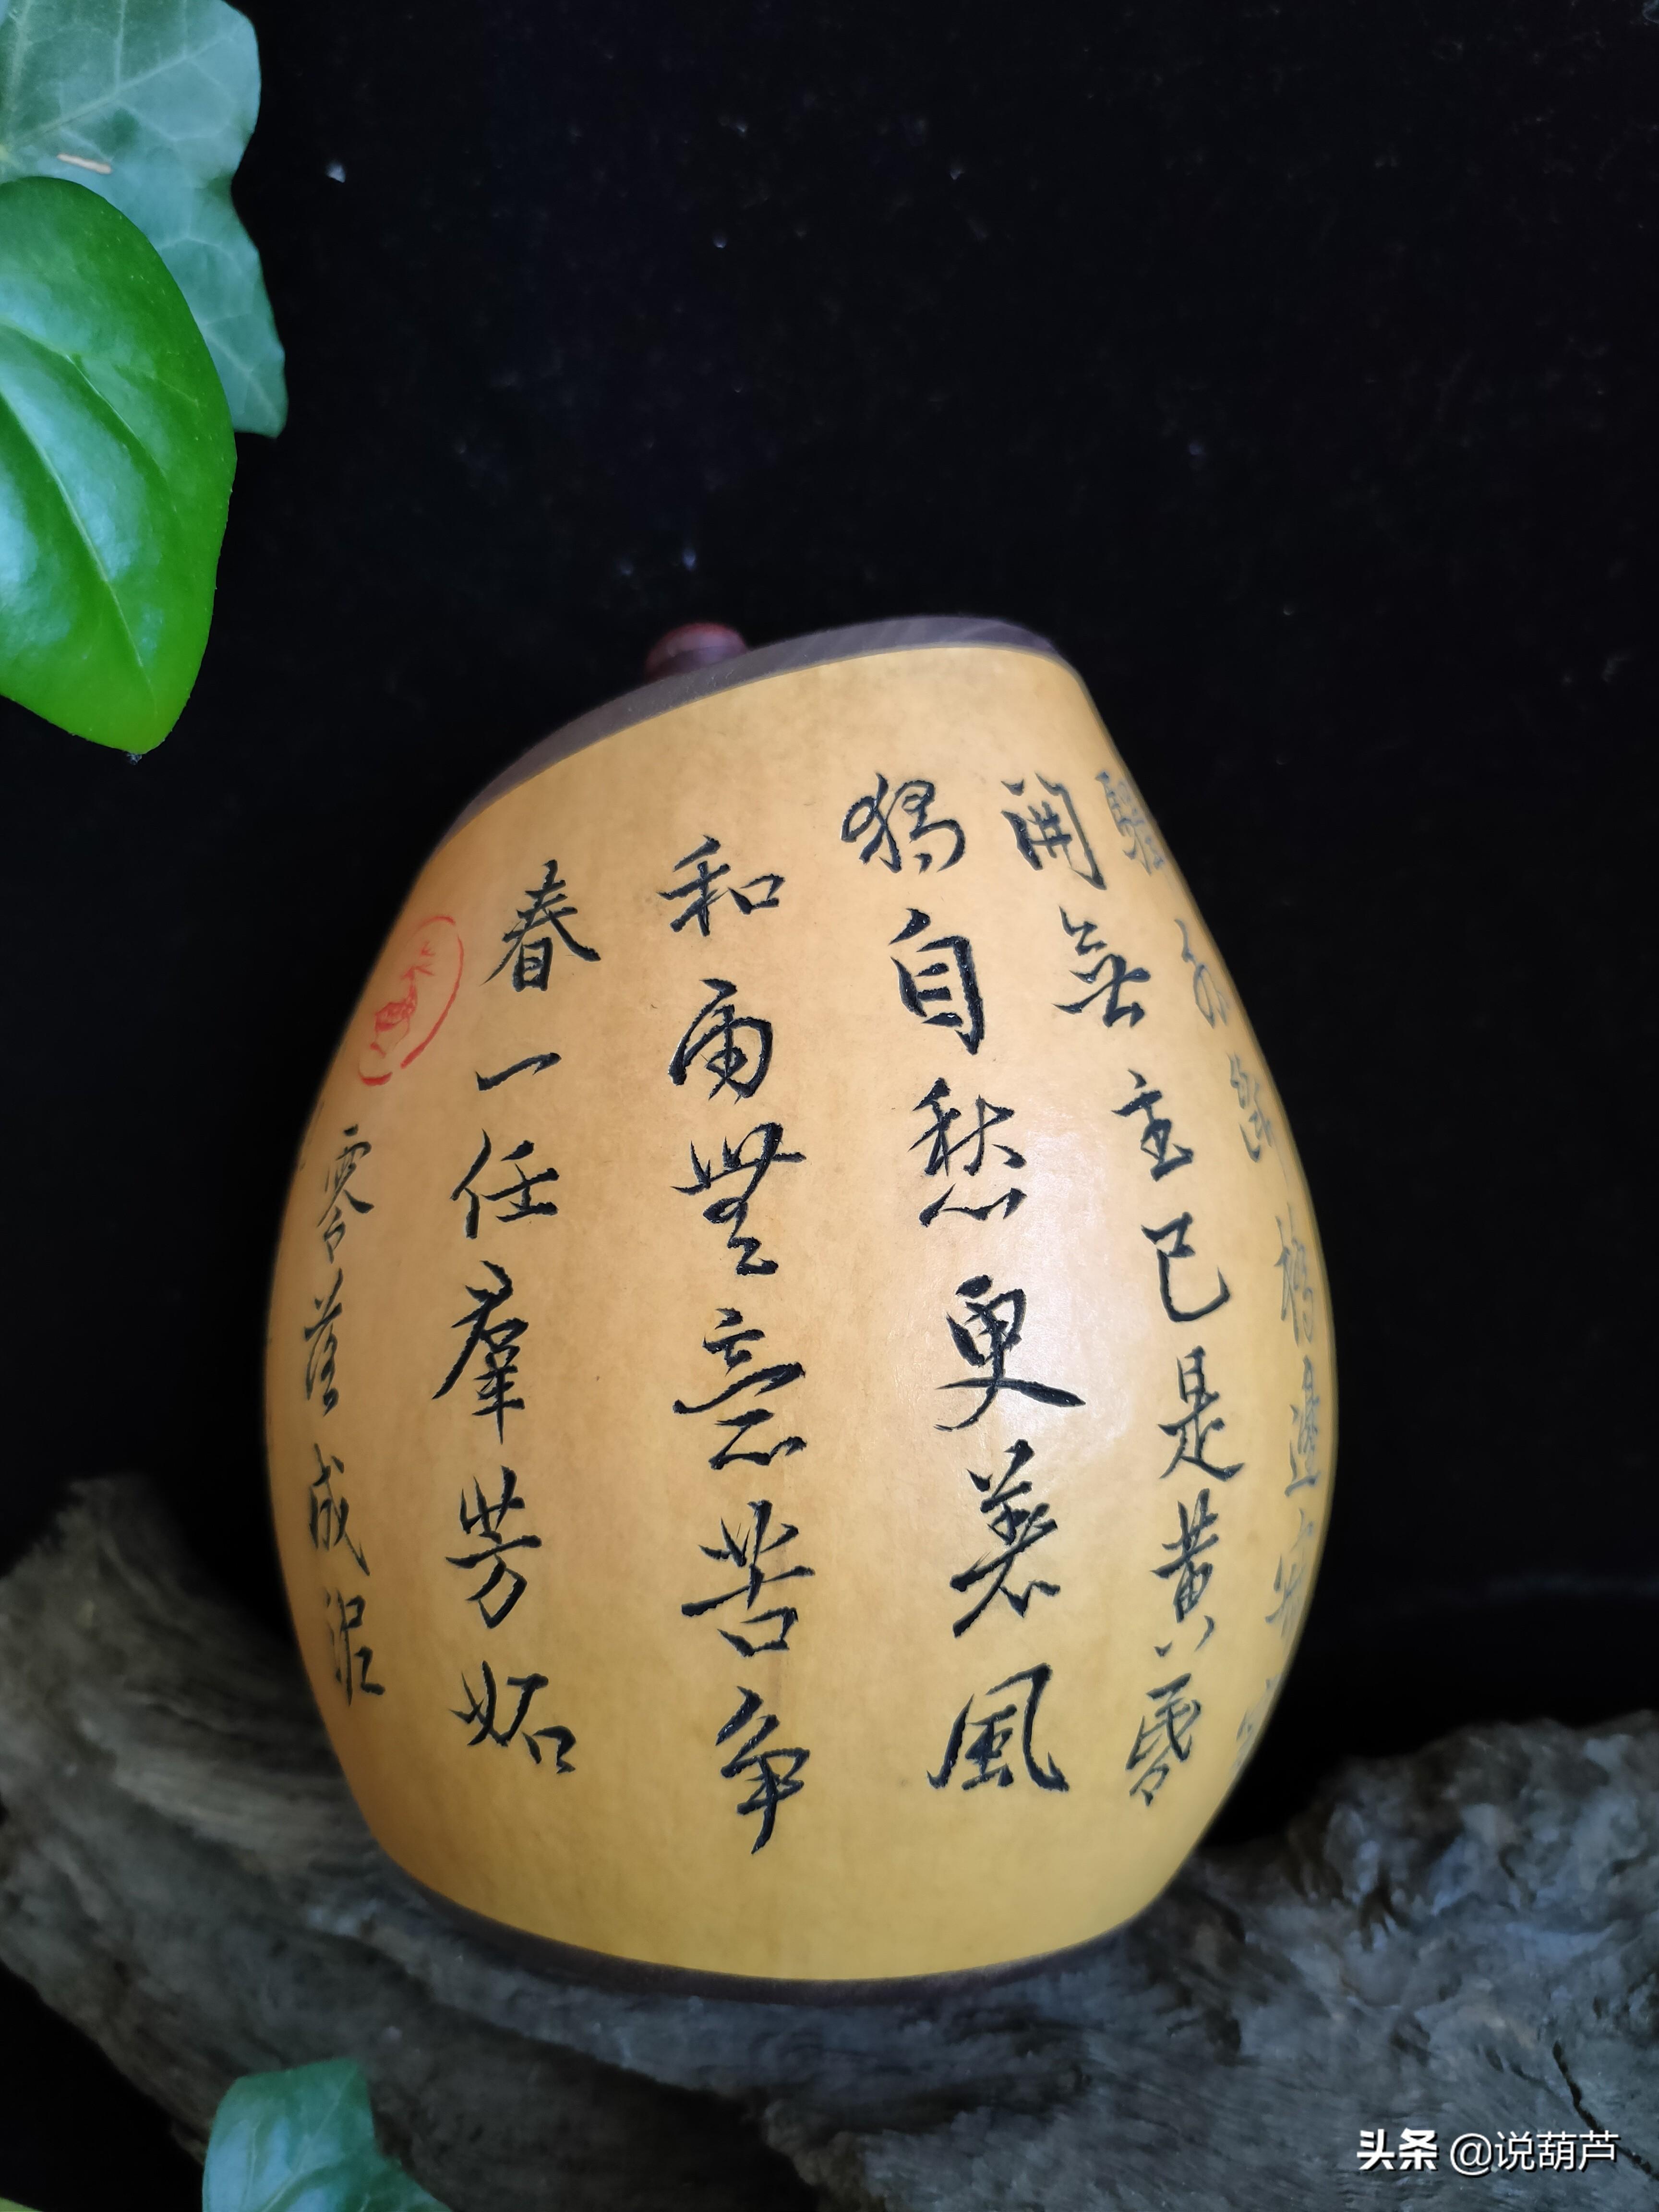 驛外斷橋邊寂寞
開無主已是黄昏
獨自愁更著風
和雨無意苦争
春一任羣芳妬
零落成泥
头条 @说葫芦